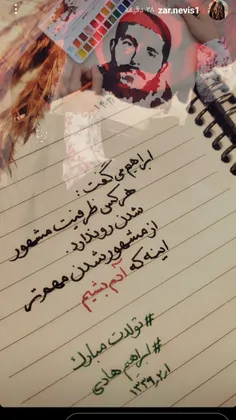 zar.nevis1 ۲۸ دقیقه
ابراهیم می گفت :
هرکس ظرفیت مشهور
شدن رو ندارد.
از مشهور شدن مهم تر
اینه که آدم بشیم
#تولدت مبارک
#ابراهیم هادی
۱٫۲٫۱۳۳۹